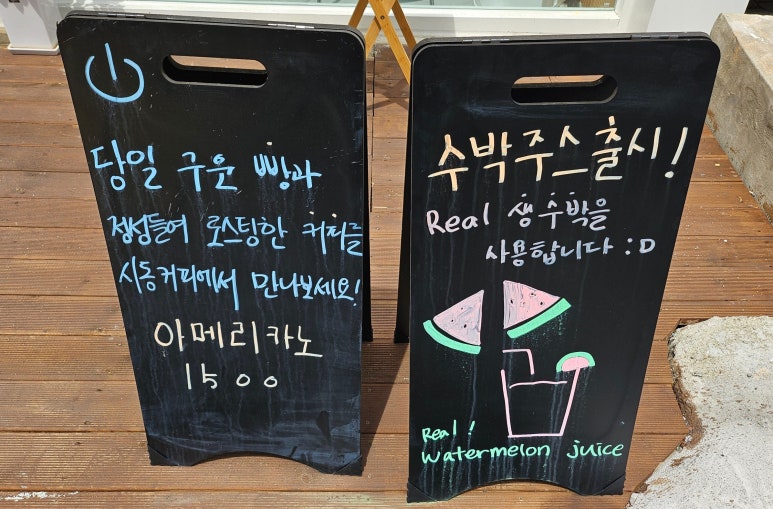 당일 구운 빵과
정성들여 로스팅한 커피를
시동커피에서 만나보세요!
아메리카노
1500
수박주스출시!
Real 생수박을
사용합니다 :D
Real!
watermelon juice